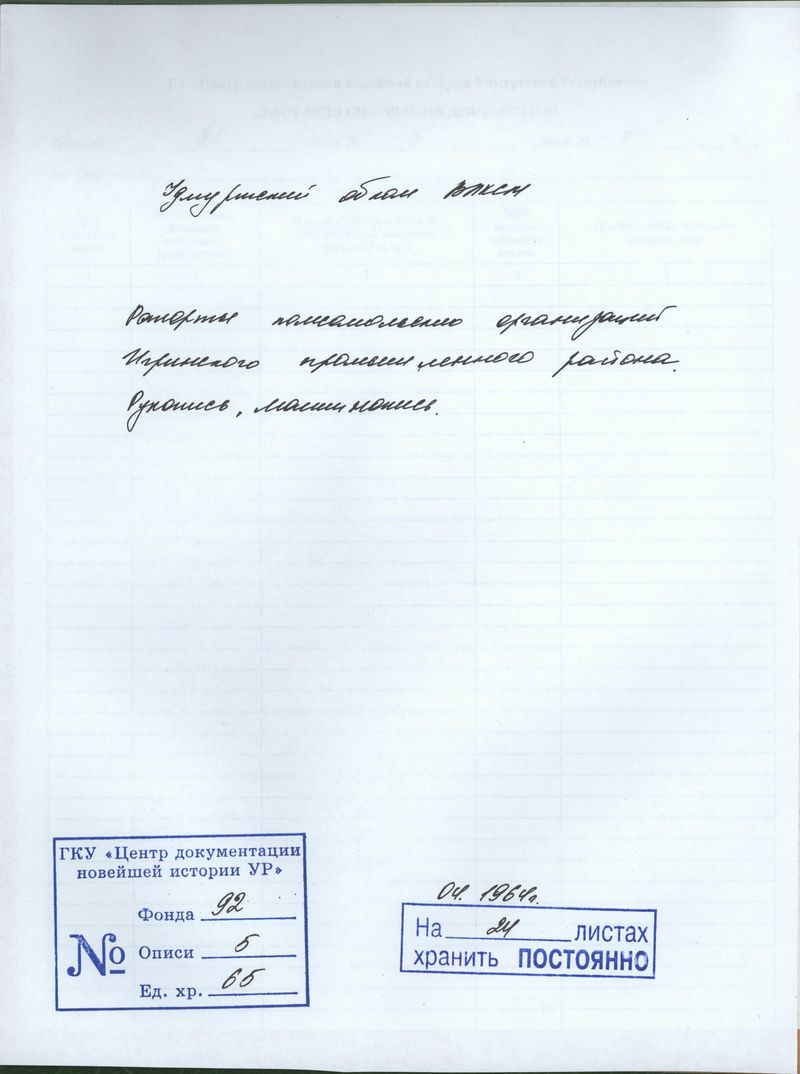 Удмуртский обком ВЛКСМ
Рапорты комсомольских организаций
Игринского промышленного района.
Рукопись, машинопись.
ГКУ «Центр документации
новейшей истории УР»
Фонда 92
№ Описи 5
Ед. хр. 65
04. 1964г.
На 24 листах
хранить ПОСТОЯННО